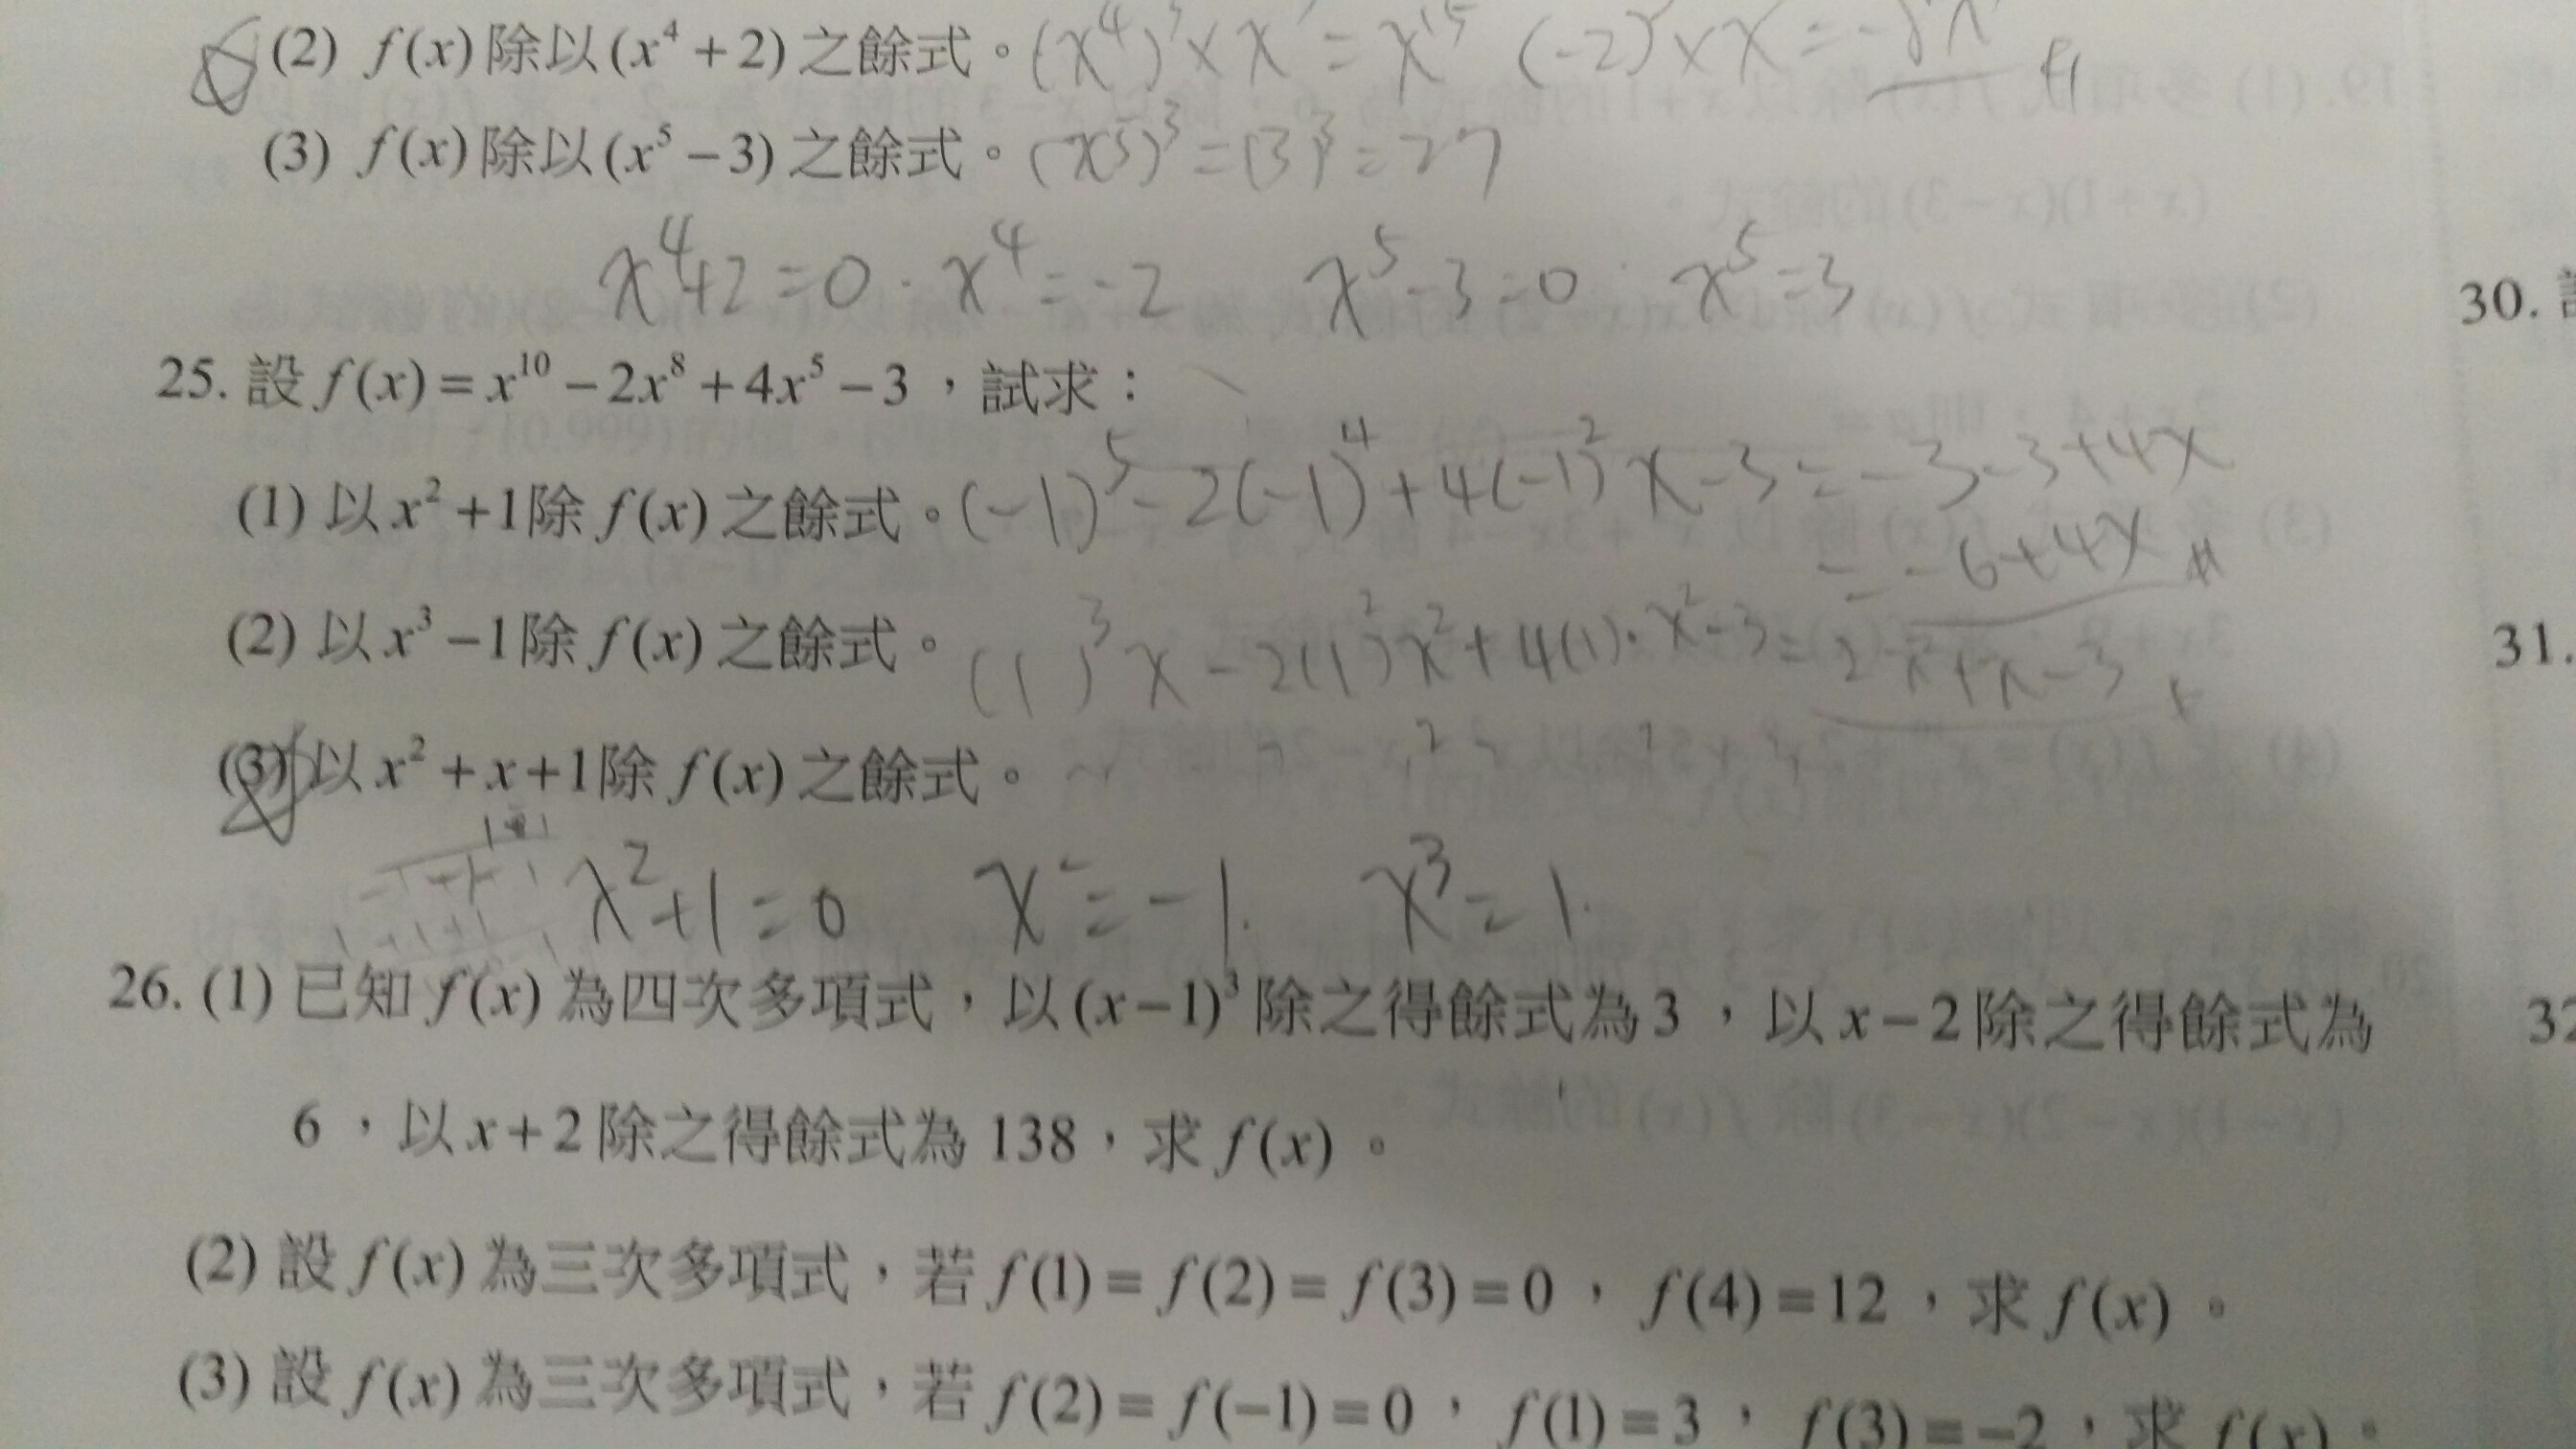 (2) f(x)除以(x⁴+2)之餘式。(x⁴)³×x³=x¹⁵ (-2)³×x³=-8x³
(3) f(x)除以(x⁵-3)之餘式。(x⁵)³=(3)³=27
x⁴+2=0. x⁴=-2 x⁵-3=0 x⁵=3
30.
25. 設f(x)=x¹⁰-2x⁸+4x⁵-3，試求：
(1) 以x²+1除f(x)之餘式。(-1)⁵-2(-1)⁴+4(-1)²x-3=-3-3+4x
=-6+4x
(2) 以x³-1除f(x)之餘式。(1)³x-2(1)²x²+4(1)·x²-3=2x²+x-3
31.
(3) 以x²+x+1除f(x)之餘式。
x²+1=0 x²=-1. x³=1.
26. (1) 已知f(x)為四次多項式，以(x-1)³除之得餘式為3，以x-2除之得餘式為
32
6，以x+2除之得餘式為138，求f(x)。
(2) 設f(x)為三次多項式，若f(1)=f(2)=f(3)=0，f(4)=12，求f(x)。
(3) 設f(x)為三次多項式，若f(2)=f(-1)=0，f(1)=3，f(3)=-2，求f(x)。